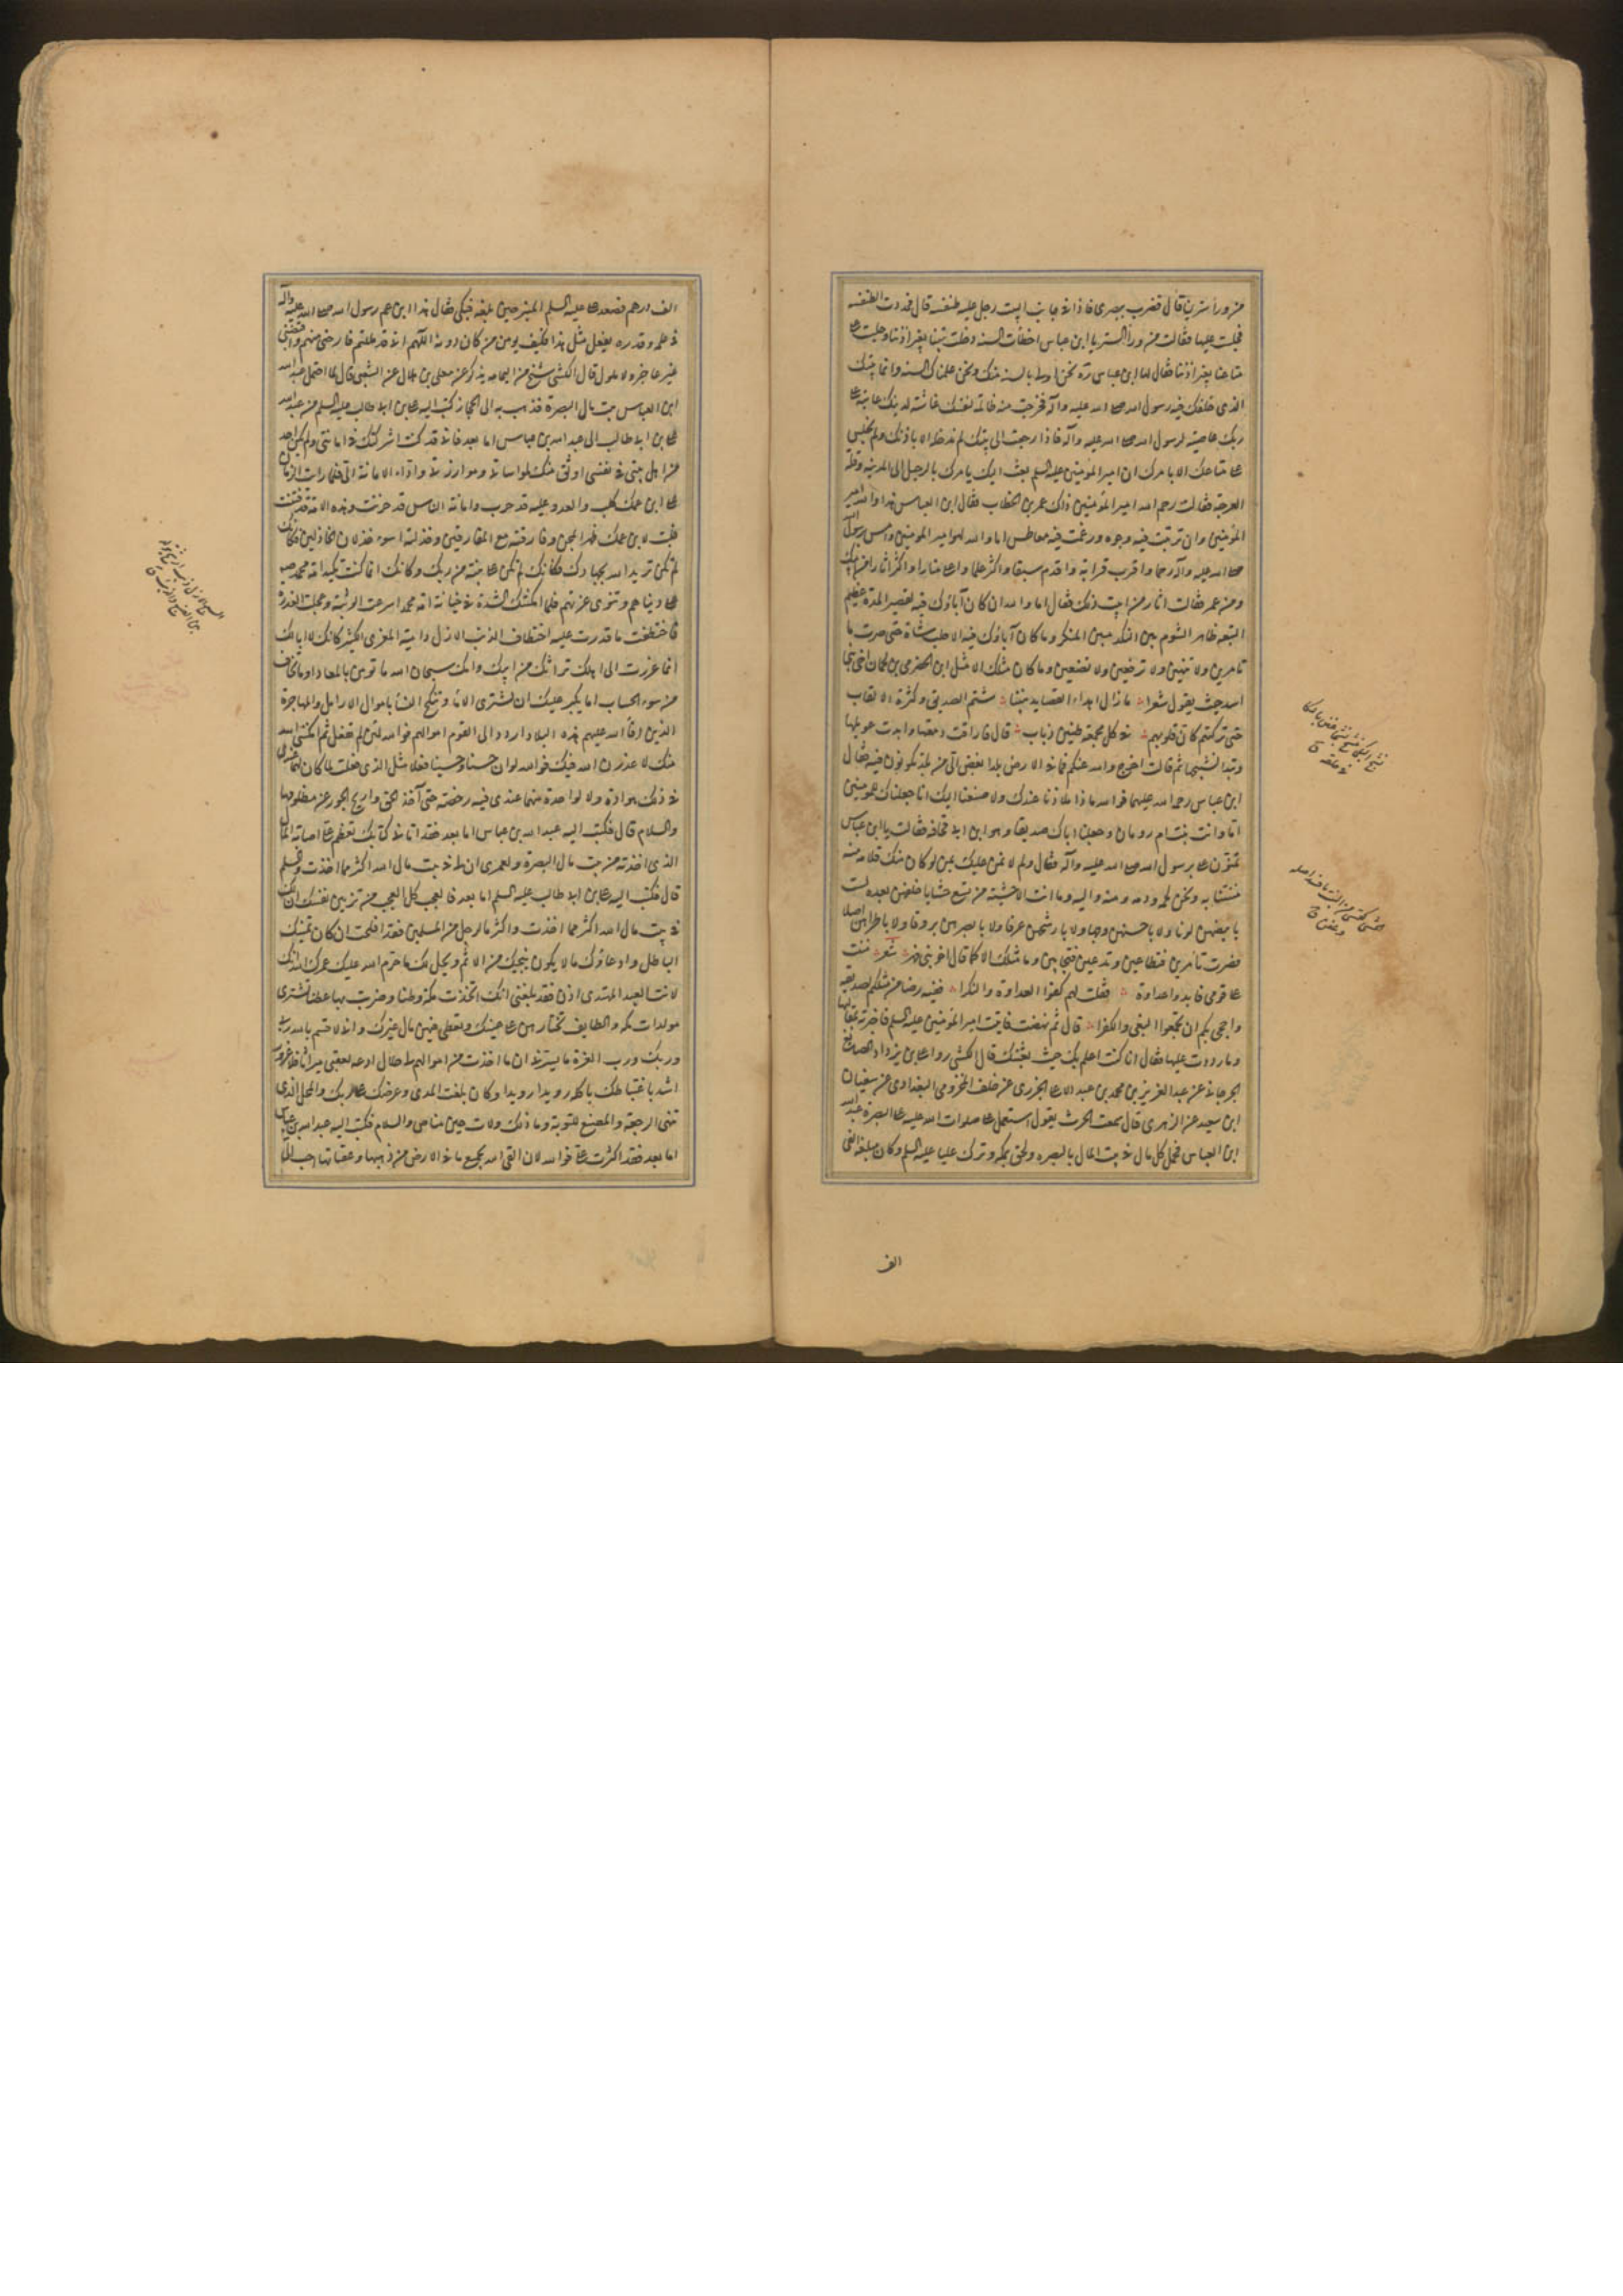 من وراء سترها قال فضرب ببصري فاذا في جانب البيت رجل عليه طنفسة قال فمددت الطنفسة
فجلست عليها فقالت من وراء الستر يا ابن عباس اخطأت السنة دخلت بيتنا بغير اذننا وجلست على
متاعنا بغير اذننا فقال لها ابن عباس ره نحن اولى بالسنة منك ونحن علمناك السنة وانما بيتك
الذي خلفك فيه رسول الله صلى الله عليه وآله فخرجت منه ظالمة لنفسك غاشة لدينك عاتية على
ربك عاصية لرسول الله صلى الله عليه وآله فاذا رجعت الى بيتك لم ندخله الا باذنك ولم نجلس
على متاعك الا بامرك ان امير المؤمنين عليه السلم بعث اليك يامرك بالرحيل الى المدينة وقلة
العرجة فقالت رحم الله امير المؤمنين ذاك عمر بن الخطاب فقال ابن العباس هذا والله امير
المؤمنين وان تربت فيه وجوه ورغمت فيه معاطس اما والله لهو امير المؤمنين وامس برسول الله
صلى الله عليه وآله رحما واقرب قرابة واقدم سبقا واكثر علما واعلى منارا واكثر آثارا من ابيك
ومن عمر فقالت ابيت ذلك فقال اما والله ان كان آباؤك فيه لقصير المدة عظيم
التبعة ظاهر الشوم بين النكد مبين المنكر وما كان آباؤك فيه الا حلب شاة حتى صرت ما
تامرين ولا تنهين ولا ترفعين ولا تضعين وما كان مثلك الا مثل ابن الحضرمي بن نجمان اخي بني
اسد حيث يقول شعرا ما زال اهداء القصايد بيننا شتم الصديق وكثرة الالقاب
حتى تركتهم كان قلوبهم في كل مجمعة طنين ذباب قال فاراقت دمعتها وابدت عويلها
وتبدا نشيجها ثم قالت اخرج والله عنكم فما في الارض بلد ابغض الي من بلد تكونون فيه فقال
ابن عباس رحمة الله عليهما فوالله ما ذا بلاؤنا عندك ولا صنعنا اليك انا جعلناك للمومنين
اما وانت بنت ام رومان وجعلنا اباك صديقا وهو ابن ابي قحافة فقالت يا ابن عباس
تمنون على برسول الله صلى الله عليه وآله فقال ولم لا نمن عليك بمن لو كان منك قلامة منه
مننتنا به ونحن لحمه ودمه ومنه واليه وما انت الا حشية من تسع حشايا خلفهن بعده لست
بابيضهن لونا ولا باحسنهن وجها ولا بارشحهن عرقا ولا بانضرهن ورقا ولا باطرأهن اصلا
فصرت تامرين فتطاعين وتدعين فتجابين وما مثلك الا كما قال اخو بني فهر شعر مننت
على قومي فابدوا عداوة فقلت لهم كفوا العداوة والنكرا ففيه رضا من مثلكم لصديقه
واحجى بكم ان تجمعوا البغي والكفرا قال ثم نهضت فاتيت امير المؤمنين عليه السلم فاخبرته بمقالتها
وما رددت عليها فقال انا كنت اعلم بك حيث بعثتك قال الكشي روى علي بن يزداد الصايغ
الجرجاني عن عبد العزيز بن محمد بن عبد الاعلى الجزري عن خلف المخزومي البغدادي عن سفيان
ابن سعيد عن الزهري قال سمعت الحرث يقول استعمل علي صلوات الله عليه على البصرة عبد الله
ابن العباس فحمل كل مال في بيت المال بالبصرة ولحق بمكة وترك عليا عليه السلم وكان مبلغه الفي
الف
الف درهم فصعد علي عليه السلم المنبر حين بلغه فبكى فقال هذا ابن عم رسول الله صلى الله عليه وآله
في علمه وقدره يفعل مثل هذا فكيف يومن من كان دونه اللهم اني قد مللتهم فارحني منهم واقبضني
غير عاجز ولا ملول قال الكشي شيخ من اليمامة يذكر عن معلى بن هلال عن الشعبي قال لما احتمل عبد الله
ابن العباس بيت مال البصرة فذهب به الى الحجاز كتب اليه علي بن ابي طالب عليه السلم من عبد الله
علي بن ابي طالب الى عبد الله بن عباس اما بعد فاني قد كنت اشركتك في امانتي ولم يكن احد
من اهل بيتي في نفسي اوثق منك لمواساتي وموازرتي واداء الامانة الي فلما رايت الزمان
على ابن عمك كلب والعدو عليه قد حرب وامانة الناس قد خزيت وهذه الامة قد فتنت
قلبت لابن عمك ظهر المجن وفارقته مع المفارقين وخذلته اسوء خذلان الخاذلين فكانك
لم تكن تريد الله بجهادك وكانك لم تكن على بينة من ربك وكانك انما كنت تكيد امة محمد صم
على دنياهم وتنوي غرتهم فلما امكنتك الشدة في خيانة امة محمد اسرعت الوثبة وعجلت العدوة
فاختطفت ما قدرت عليه اختطاف الذئب الازل دامية المعزى الكسيرة كانك لا ابا لك
انما جررت الى اهلك تراثك من ابيك وامك سبحان الله ما تومن بالمعاد اوما تخاف
من سوء الحساب اما يكبر عليك ان تشتري الاماء وتنكح النساء باموال الارامل والمهاجرة
الذين افاء الله عليهم هذه البلاد اردد الى القوم اموالهم فوالله لئن لم تفعل ثم امكنني الله
منك لاعذرن الله فيك فوالله لو ان حسنا وحسينا فعلا مثل الذي فعلت لما كان لهما عندي
في ذلك هوادة ولا لواحدة منهما عندي فيه رخصة حتى آخذ الحق وازيح الجور عن مظلومها
والسلام قال فكتب اليه عبد الله بن عباس اما بعد فقد اتاني كتابك تعظم علي اصابة المال
الذي اخذته من بيت مال البصرة ولعمري ان لي في بيت مال الله اكثر مما اخذت والسلم
قال فكتب اليه علي بن ابي طالب عليه السلم اما بعد فالعجب كل العجب من تزيين نفسك ان لك
في بيت مال الله اكثر مما اخذت واكثر مالرجل من المسلمين فقد افلحت ان كان تمنيك
الباطل وادعاؤك ما لا يكون ينجيك من الاثم ويحل لك ما حرم الله عليك عمرك الله انك
لانت العبد المهتدي اذن فقد بلغني انك اتخذت مكة وطنا وضربت بها عطنا تشتري
مولدات مكة والطايف تختارهن على عينك وتعطي فيهن مال غيرك واني لاقسم بالله ربي
وربك ورب العزة ما يسرني ان ما اخذت من اموالهم لي حلال ادعه لعقبي ميراثا فلا غرو
اشد باغتباطك باكله رويدا رويدا وكان بلغت المدى وعرضك على ربك والمحل الذي
تتمنى الرجعة والمضيع للتوبة وما ذلك ولات حين مناص والسلام فكتب اليه عبد الله بن عباس
اما بعد فقد اكثرت علي فوالله لان القى الله بجميع ما في الارض من ذهبها وعقيانها احب الي